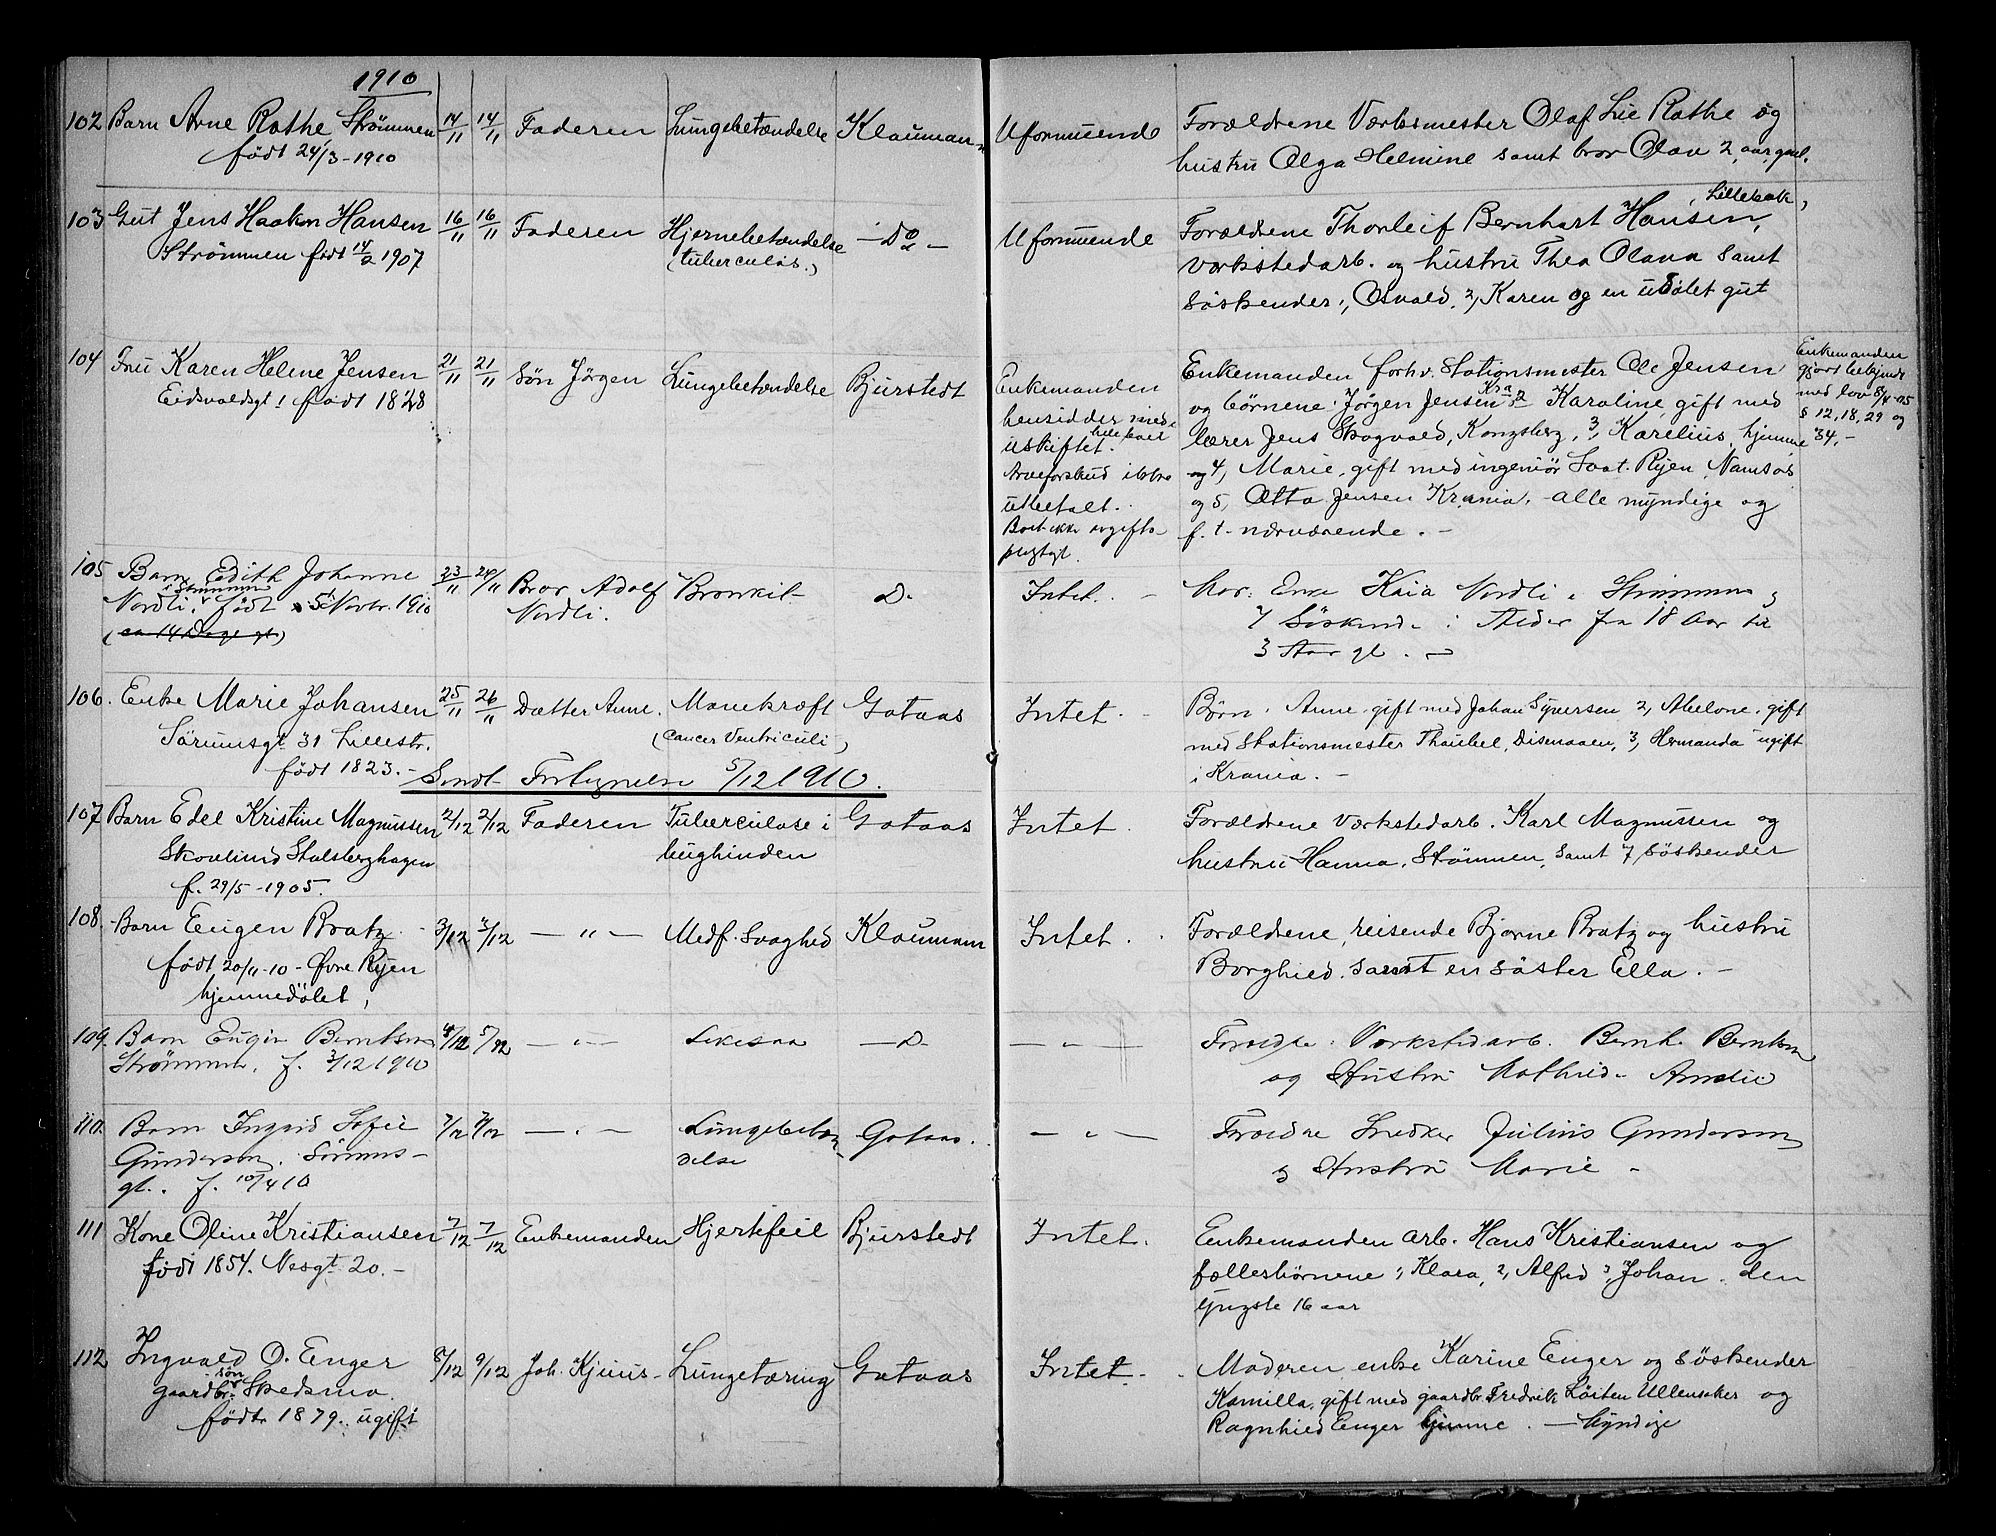 1910
102 Barn Arne Rathe Strømmen 14/11 14/11 Faderen Lungebetændelse Klouman Uformuende Forældrene Værksmester Olaf Lie Rathe og
født 24/3-1910 hustru Olga Helmine samt bror Olav 2 aar gml.
103 Gut Jens Haakon Hansen 16/11 16/11 Faderen Hjernebetændelse - Do - Uformuende Forældrene Thorleif Bernhart Hansen, Lillebæk,
Strømmen født 14/2 1907 (tuberculøs.) Værkstedarb. og hustru Thea Olava samt
Søskende 1, Osvald, 2, Karen og en udøbt gut
104 Fru Karen Helene Jensen 21/11 21/11 Søn Jørgen Lungebetændelse Bjurstedt Enkemanden forhv. Stationsmester Ole Jensen
Eidsvoldsgt 1 født 1828
Enkemanden
hensidder med
uskiftet hele boet.
Arveforskud ikke
utbetalt.
Boet ikke avgifts-
pligtigt.
og børnene: Jørgen Jensen Kra 2 Karoline gift med
lærer Jens Skogvold, Kongsberg, 3, Karelius hjemme
og 4, Marie, gift med ingeniør Ryen, Namsos
og 5, Otto Jensen Krania. - alle myndige og
f. t. nærværende. -
Enkemanden
gjort bekjendt
med lov 8/4-05
§ 12, 18, 29 og
34. -
105 Barn Edith Johanne 23/11 24/11 Bror Adolf Bronkit D. Intet. - Mor: Enke Kaia Nordli, Strømmen og
Nordli, Strømmen født 5 Novbr. 1910 Nordli. 7 Søskende i Alder fra 18 Aar til
(ca 14 Dage gl) 3 Aar gl. -
106. Enke Marie Johansen 25/11 26/11 Datter Anne. Mavekræft Gotaas Intet. - Børn. Anne, gift med Johan Syversen 2, Abelone, gift
Sørumsgt 31 Lillestr. (cancer Ventriculi) med Stationsmester Thaubel, Disenaaen, 3, Hermanda ugift
født 1823. - i Krania. -
Sendt Fortegnelse 5/12 1910.
107 Barn Edel Kristine Magnussen 2/12 2/12 Faderen Tuberculose i Gotaas Intet. Forældrene Værkstedarb. Karl Magnussen og
Skovlund Stalsberghagen bughinden hustru Hanna, Strømmen, samt 7 søskender
f. 29/5-1905.
108. Barn Eugen Bratz. 3/12 3/12 - " - Medf. Svaghed Klouman Intet. Forældrene, reisende Bjarne Bratz og hustru
født 20/11-10 - Øvre Ryen Borghild. samt en søster Ella. -
hjemmedøbt,
109. Barn Eugin Berntsen 4/12 5/12 - " - D. - " - Foreldre: Værkstedarb. Bernh. Berntsen
Strømmen. f. 3/12 1910 og Hustru Mathilde Amalie
110. Barn Ingrid Sofie 7/12 7/12 - " - Lungebetæn Gotaas. - " - Foreldre Snedker Julius Gundersen
Gundersen. Sørums- delse og Hustru Marie -
gt. f. 10/4 10
111 Kone Oline Kristiansen 7/12 7/12 Enkemanden Hjertefeil Bjurstedt Intet. Enkemanden arb. Hans Kristiansen og
født 1854. Nesgt 20. - fællesbørnene 1, Klara, 2, Alfred 3, Johan. den
yngste 16 aar
112 Ingvald O. Enger 8/12 9/12 Joh. Kjuus - Lungetæring Gotaas Intet. - Moderen enke Karine Enger og søskender
gaardbr. søn Skedsmo. Kamilla, gift med gaardbr. Fredrik Løiten Ullensaker og
født 1879. ugift Ragnhild Enger hjemme. - Myndige